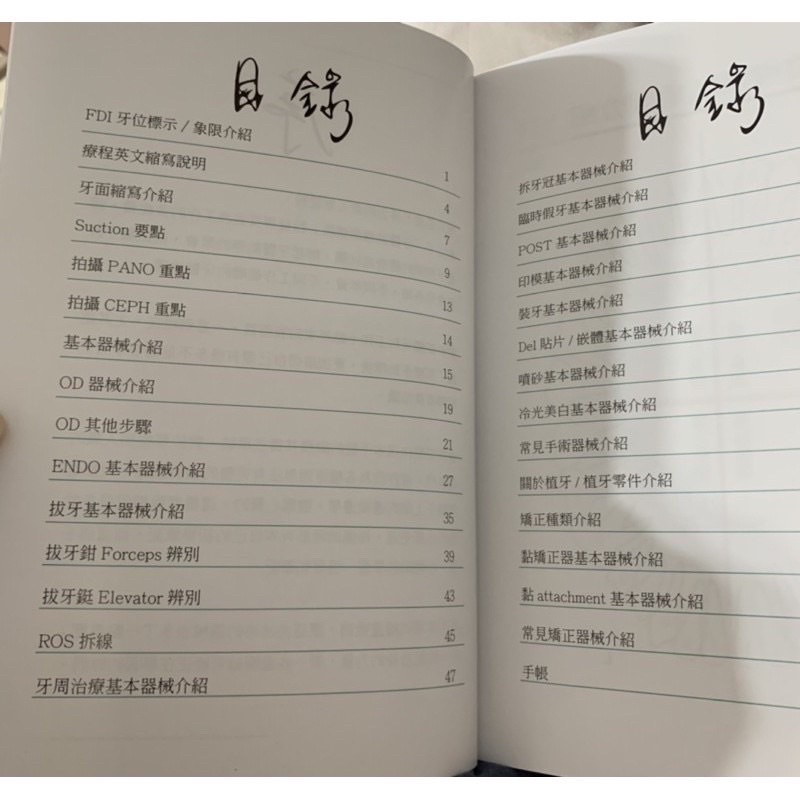 目錄
FDI 牙位標示 / 象限介紹 1
療程英文縮寫說明 4
牙面縮寫介紹 7
Suction 要點 9
拍攝 PANO 重點 13
拍攝 CEPH 重點 14
基本器械介紹 15
OD 器械介紹 19
OD 其他步驟 21
ENDO 基本器械介紹 27
拔牙基本器械介紹 35
拔牙鉗 Forceps 辨別 39
拔牙鋌 Elevator 辨別 43
ROS 拆線 45
牙周治療基本器械介紹 47
目錄
拆牙冠基本器械介紹
臨時假牙基本器械介紹
POST 基本器械介紹
印模基本器械介紹
裝牙基本器械介紹
Del 貼片 / 嵌體基本器械介紹
噴砂基本器械介紹
冷光美白基本器械介紹
常見手術器械介紹
關於植牙 / 植牙零件介紹
矯正種類介紹
黏矯正器基本器械介紹
黏 attachment 基本器械介紹
常見矯正器械介紹
手帳